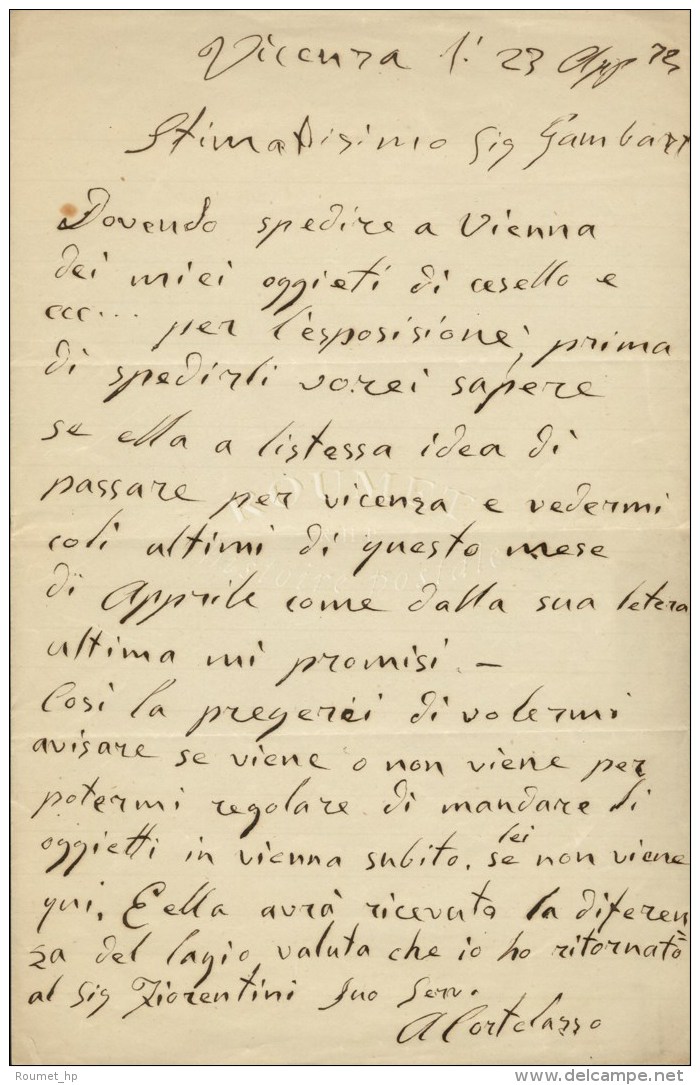 Vicenza li 23 App 73
Stimatisimo Sig Gambart
Dovendo spedire a Vienna
dei miei oggieti di cesello e
ccc... per l'esposisione, prima
di spedirli vorei sapere
se ella a listessa idea di
passare per vicenza e vedermi
coli ultimi di questo mese
di Apprile come dalla sua letera
ultima mi promisi. —
Cosi la pregerei di volermi
avisare se viene o non viene per
potermi regolare di mandare li
oggietti in vienna subito. se lei non viene
qui. E ella avrà ricevuto la diferen
za del lagio valuta che io ho ritornato
al Sig Fiorentini Suo Serv.
A Cortelazzo
ROUMET
Roumet_hp
delcampe.net